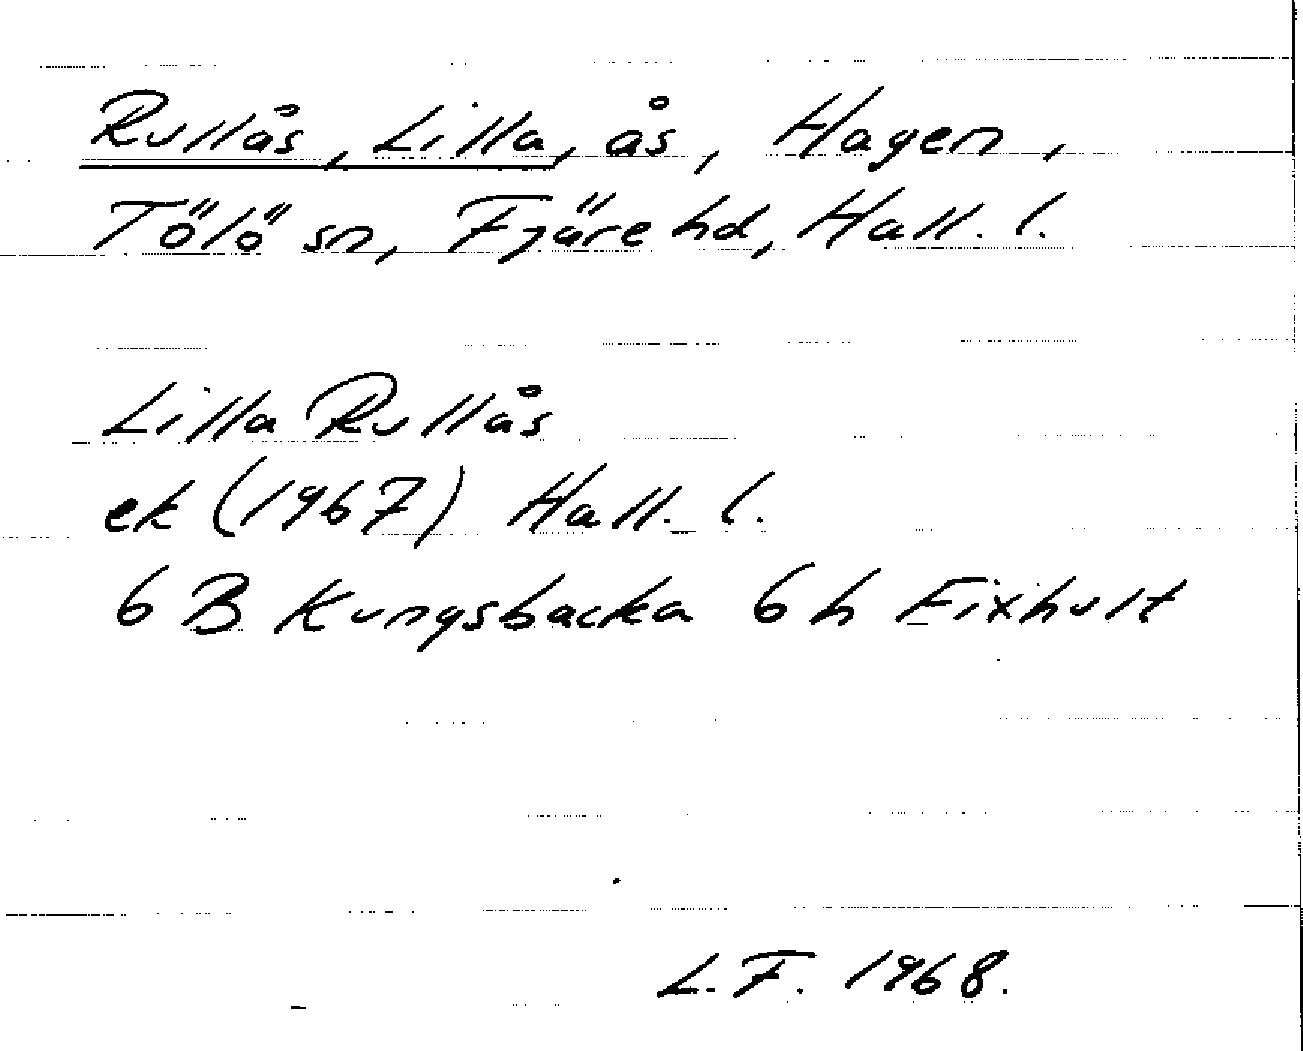 Rullås, Lilla, ås, Hagen,
Tölö sn, Fjäre hd, Hall. l.
Lilla Rullås
ek (1967) Hall. l.
6 B Kungsbacka 6 h Fixhult
L.F. 1968.